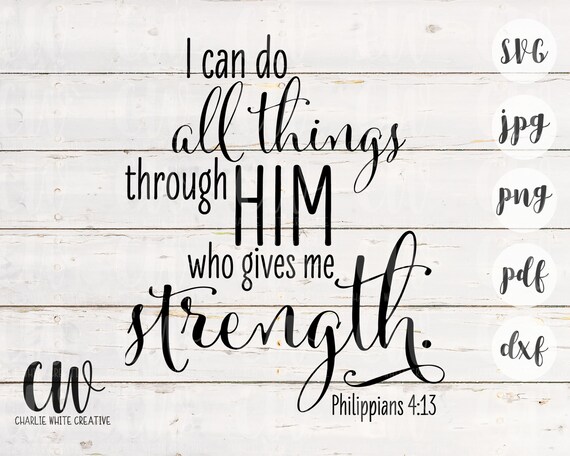 I can do
all things
through HIM
who gives me
strength.
Philippians 4:13
SVG
jpg
png
pdf
dxf
CW
CHARLIE WHITE CREATIVE